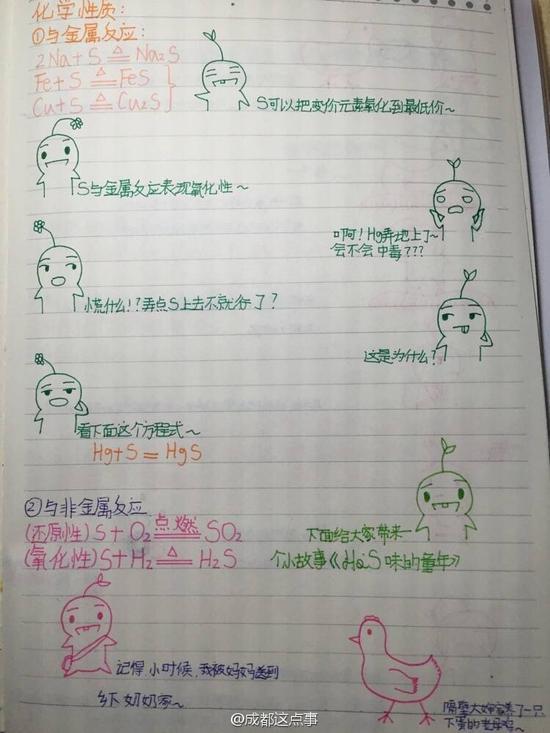 化学性质:
①与金属反应:
2Na+S ≜ Na₂S
Fe+S ≜ FeS
Cu+S ≜ Cu₂S
S可以把变价元素氧化到最低价~
S与金属反应表现氧化性~
啊!Hg弄地上了~
会不会中毒???
慌什么!?弄点S上去不就行了?
这是为什么?
看下面这个方程式~
Hg+S=HgS
②与非金属反应
(还原性)S+O₂ 点燃 SO₂
(氧化性)S+H₂ ≜ H₂S
下面给大家带来一
个小故事《H₂S味的童年》
记得小时候,我被妈妈送到
乡下奶奶家~
隔壁大婶家养了一只
下蛋的老母鸡~
@成都这点事